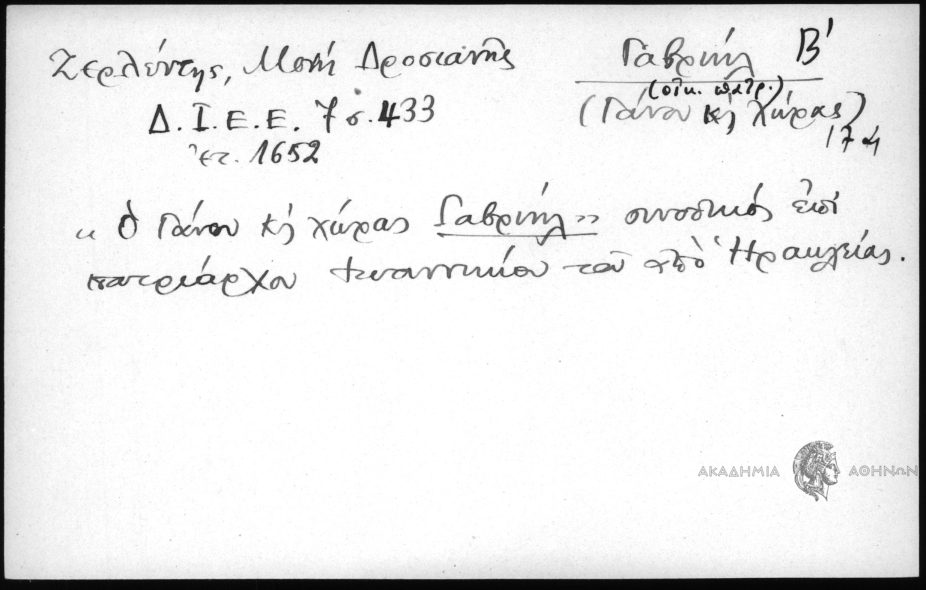 Ζερλέντης, Μονή Δροσιανῆς
Δ. Ι. Ε. Ε. 7 σ. 433
ἔτ. 1652
Γαβριήλ Β'
(οἰκ. πατρ.)
(Γάνου κὴ Χώρας)
« Ὁ Γάνου κὴ Χώρας Γαβριήλ » συνοδικός ἐπί
πατριάρχου Ἰωαννικίου τοῦ ἀπὸ Ἡρακλείας.
ΑΚΑΔΗΜΙΑ ΑΘΗΝΩΝ